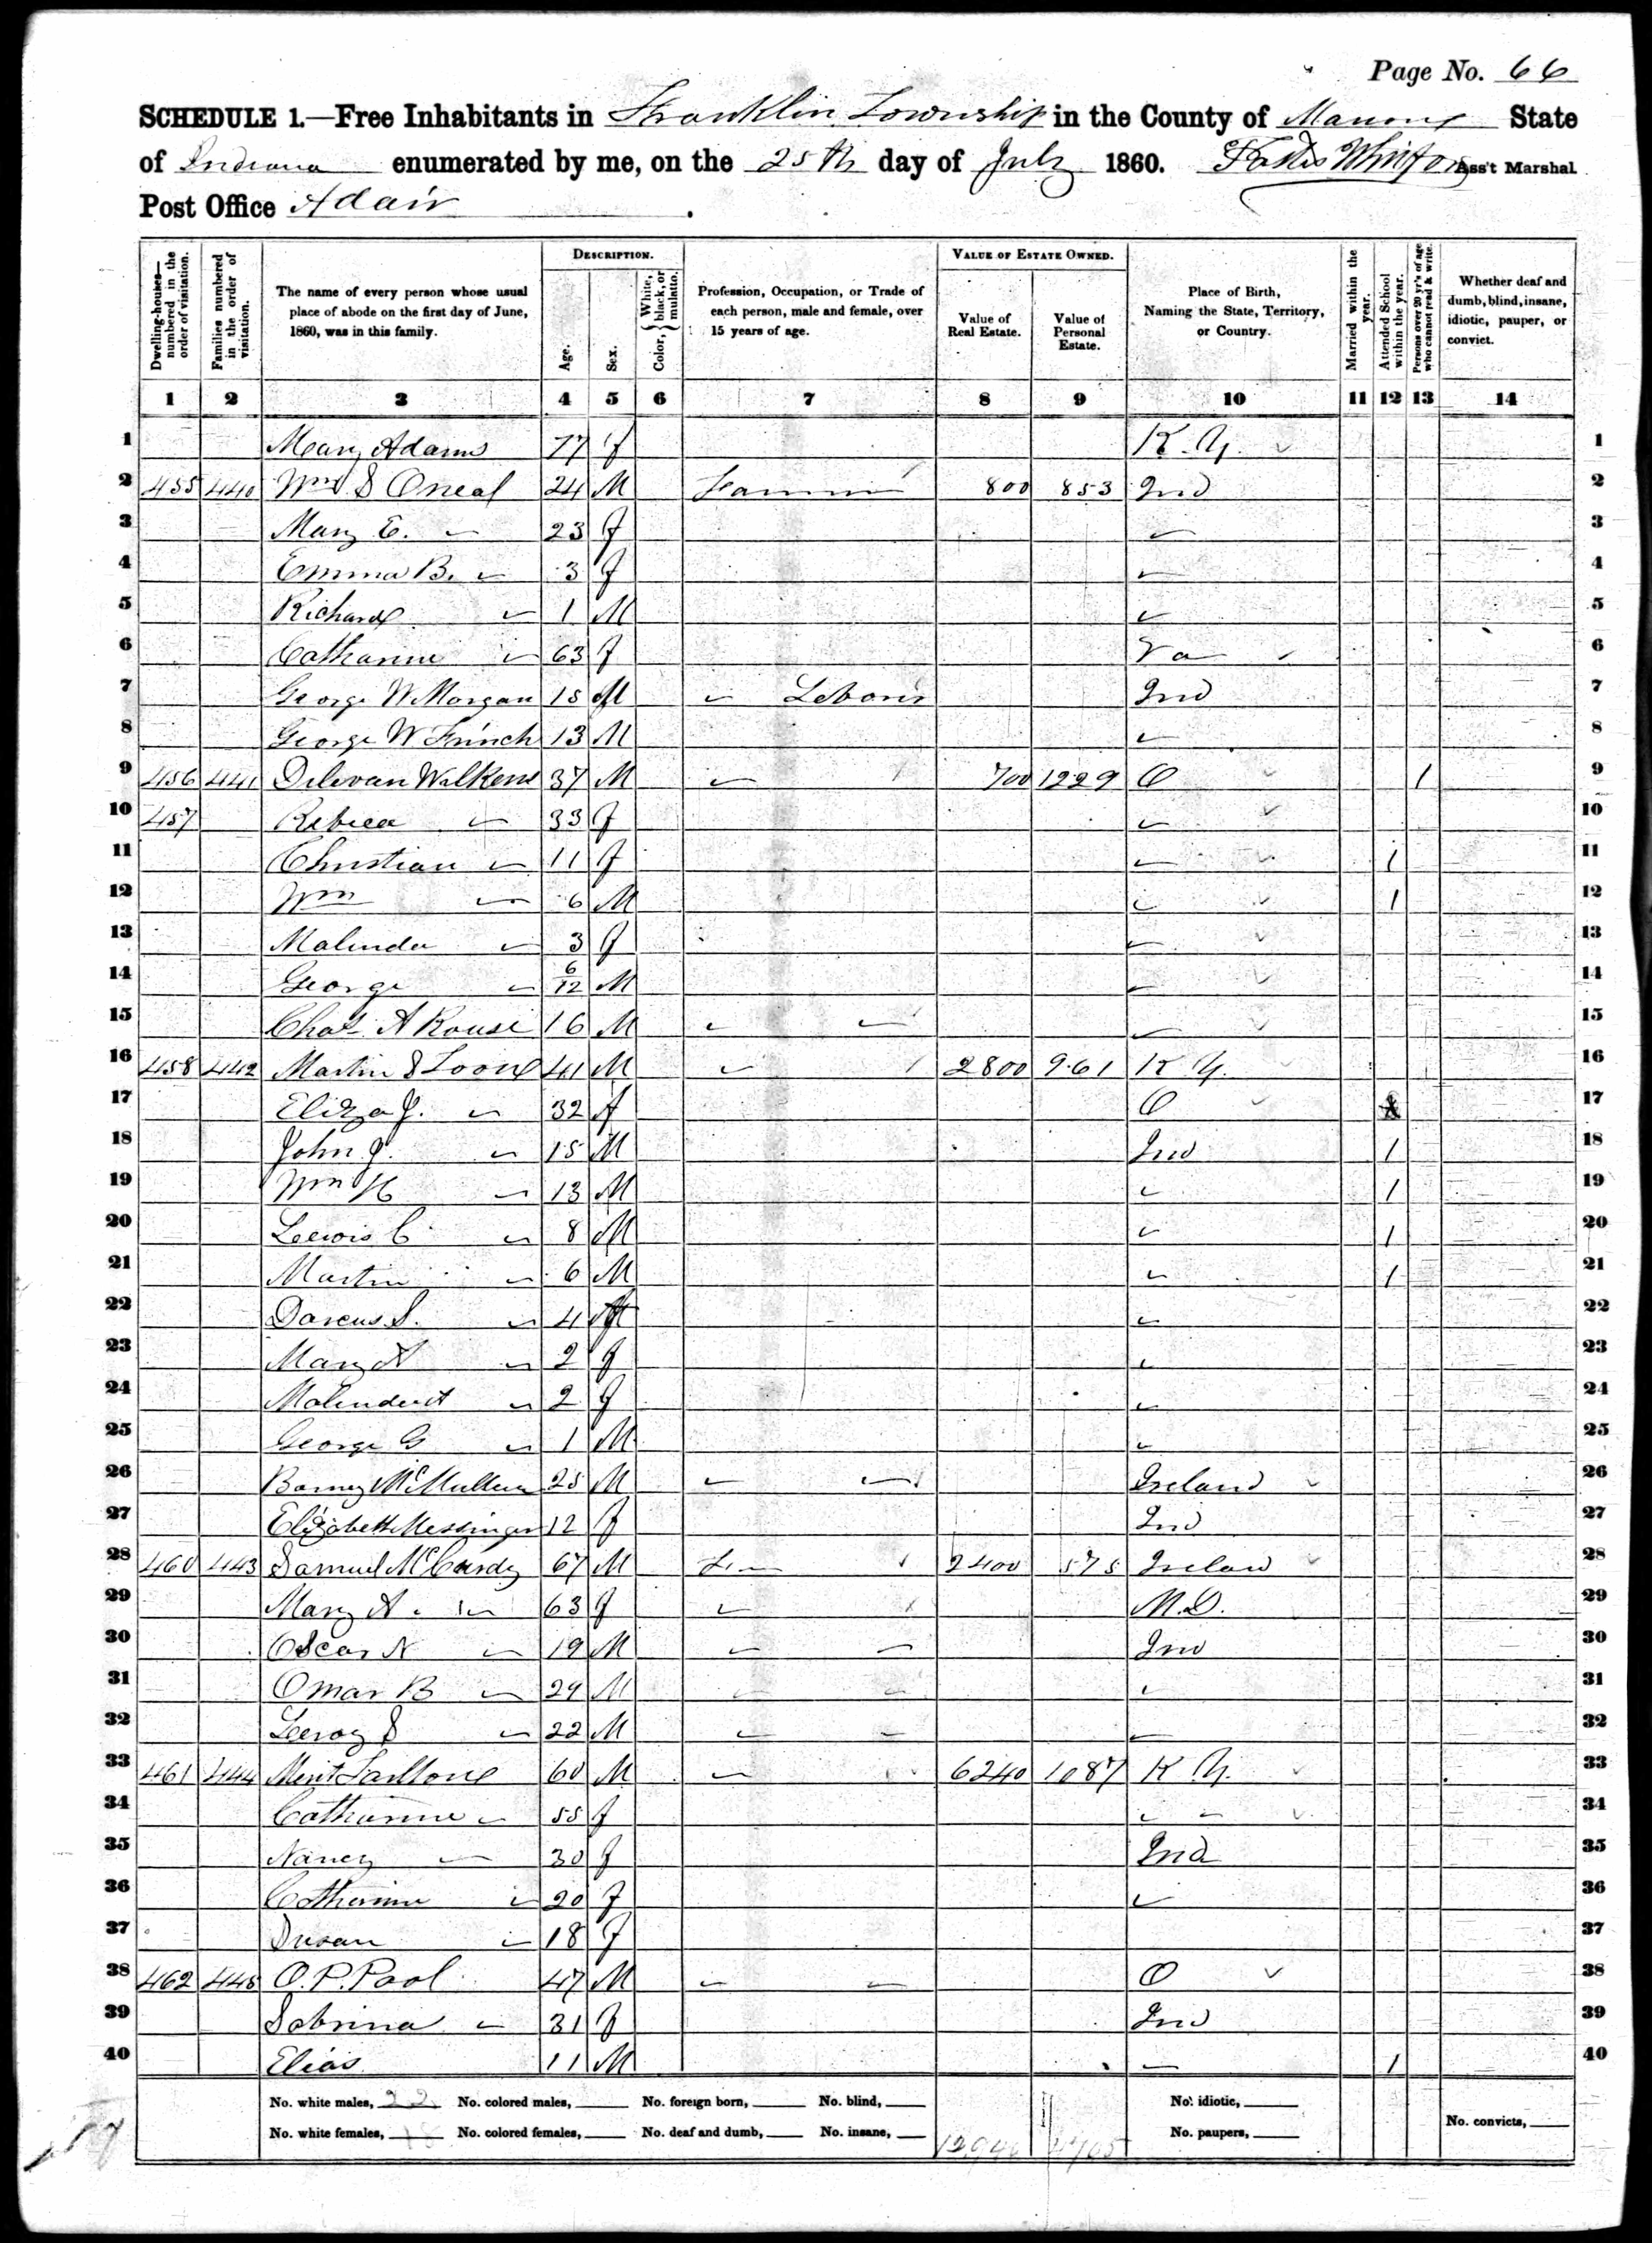 Page No. 66
SCHEDULE 1.—Free Inhabitants in Franklin Township in the County of Marion State
of Indiana enumerated by me, on the 25th day of July 1860. Ass't Marshal
Post Office Adair
Dwelling-houses—numbered in the order of visitation. Families numbered in the order of visitation. The name of every person whose usual place of abode on the first day of June, 1860, was in this family. DESCRIPTION. Age. Sex. Color, {White, black, or mulatto. Profession, Occupation, or Trade of each person, male and female, over 15 years of age. VALUE OF ESTATE OWNED. Value of Real Estate. Value of Personal Estate. Place of Birth, Naming the State, Territory, or Country. Married within the year. Attended School within the year. Persons over 20 yr's of age who cannot read & write. Whether deaf and dumb, blind, insane, idiotic, pauper, or convict.
1 2 3 4 5 6 7 8 9 10 11 12 13 14
1 Mary Adams 77 f K.Y. 1
2 455 440 Wm S Oneal 24 M Farmer 800 853 Ind 2
3 Mary E. 23 f 3
4 Emma B. 3 f 4
5 Richard 1 M 5
6 Catharine 63 f Va 6
7 George W Morgan 15 M Labour 	Ind 7
8 George W 13 M 8
9 456 441 Delevan Wilkens 37 M 700 1229 O 1 9
10 457 Rebeca 33 f 10
11 Christian 11 f 1 11
12 Wm 6 M 1 12
13 Malinda 3 f 13
14 George 6/12 M 14
15 Chas A Rouse 16 M 15
16 458 442 Martin S 41 M 2800 961 K.Y. 16
17 Eliza J. 32 f O 17
18 John J. 15 M Ind 1 18
19 Wm H 13 M 1 19
20 Lewis C 8 M 1 20
21 Martin 6 M 1 21
22 Darcus S. 4 22
23 Mary A 2 f 23
24 Malinda A 2 f 24
25 George G 1 M 25
26 Barney McMullen 25 M Ireland 26
27 Elizabeth Messinger 12 f Ind 27
28 460 443 Samuel McCurdy 67 M 2400 575 Ireland 28
29 Mary A. 63 f M.D. 29
30 Oscar N 19 M Ind 30
31 Omar B 24 M 31
32 Leeroy S 22 M 32
33 461 444 60 M 6240 1087 K.Y. 33
34 Catharine 55 f 34
35 Nancy 30 f Ind 35
36 Catharine 20 f 36
37 Susan 18 f 37
38 462 445 O.P. Pool 47 M O 38
39 Sabrina 31 f Ind 39
40 Elias 11 M 1 40
No. white males, 22 No. colored males, No. foreign born, No. blind, No. idiotic, No. convicts,
No. white females, 18 No. colored females, No. deaf and dumb, No. insane, 12940 4705 No. paupers,